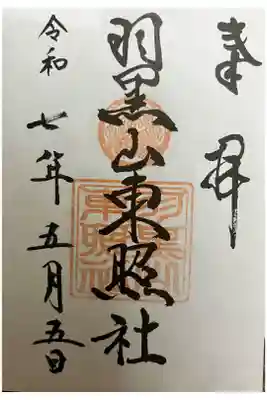 奉拝
羽黒山東照社
令和七年五月五日